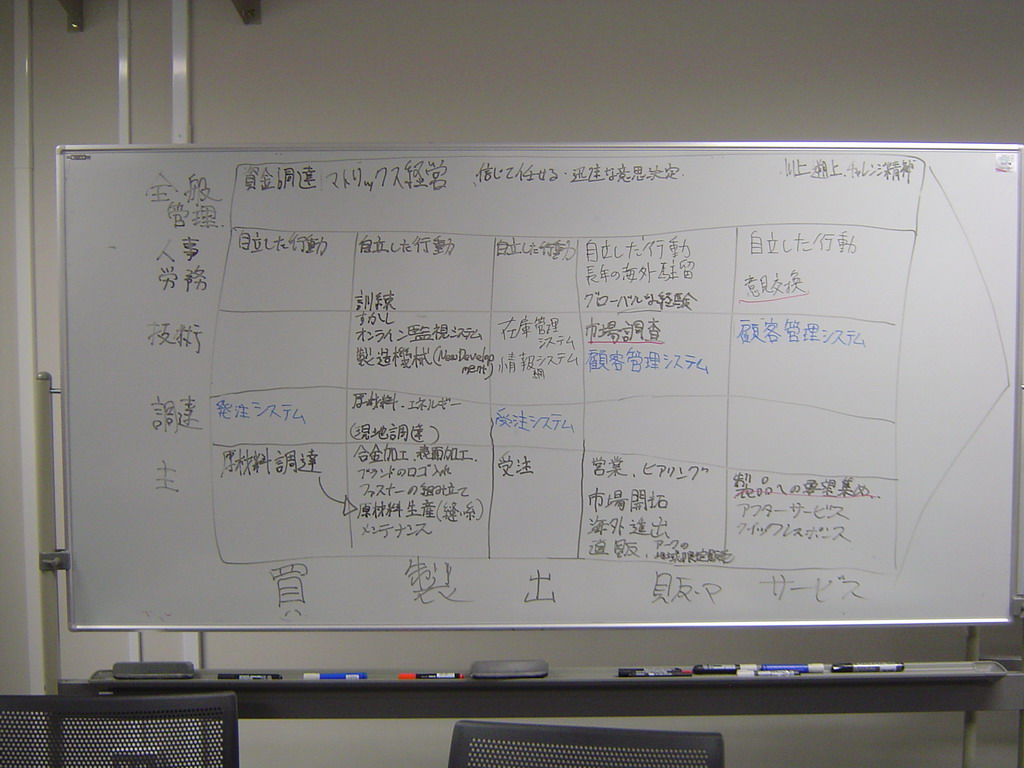 全般
管理
資金調達 マトリックス経営 信じて任せる・迅速な意思決定
川上遡上、チャレンジ精神
人事
労務
自立した行動
自立した行動
訓練
自立した行動
自立した行動
長年の海外駐留
グローバルな経験
自立した行動
意見交換
技術
すかし
オンライン監視システム
製造機械(New Develop
ment)
在庫管理
システム
情報システム
網
市場調査
顧客管理システム
顧客管理システム
調達
発注システム
原材料・エネルギー
(現地調達)
受注システム
主
原材料調達
合金加工、表面加工、
ブランドのロゴ入れ
ファスナーの組み立て
原材料生産(縫糸)
メンテナンス
受注
営業、ヒアリング
市場開拓
海外進出
直販
製品への要望集め、
アフターサービス
クイックレスポンス
買
い
製
出
販・マ
サービス